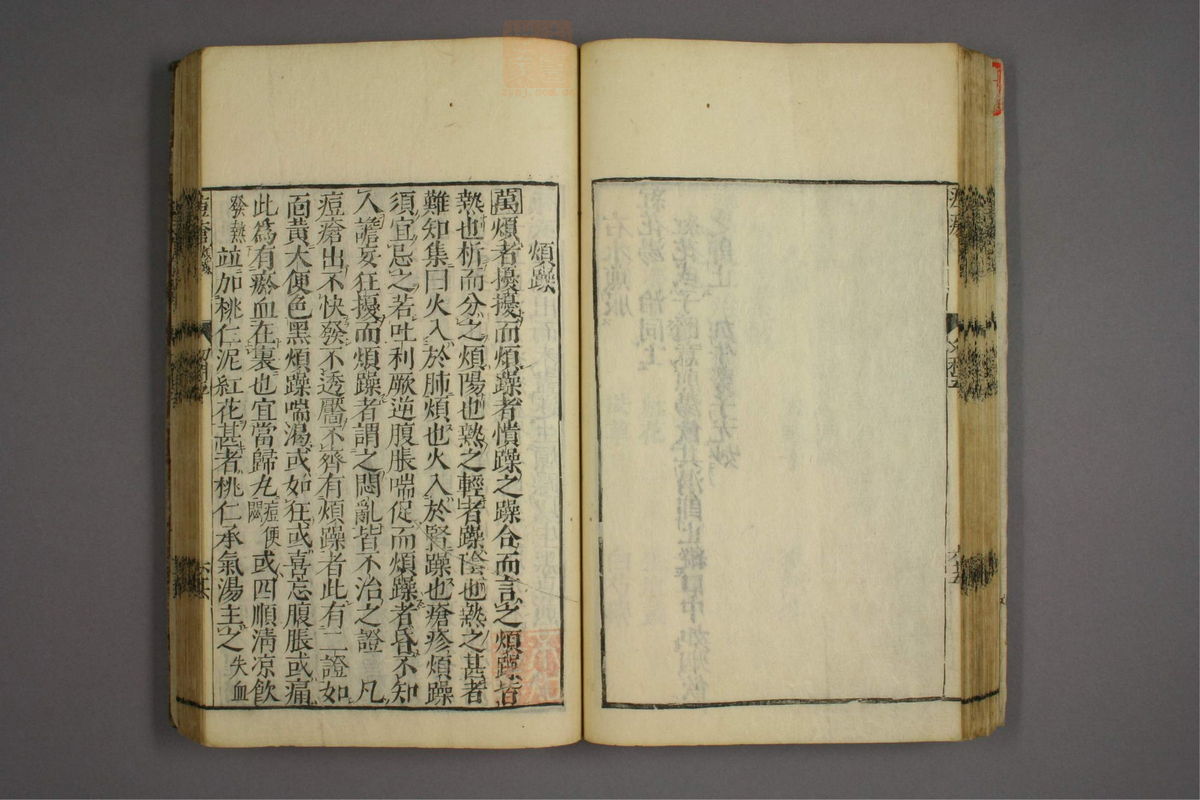 煩躁
萬煩者擾擾而煩躁者憤躁之躁合而言之煩躁皆
熱也析而分之煩陽也熱之輕者躁陰也熱之甚者
難知集曰火入於肺煩也火入於腎躁也瘡疹煩躁
須宜忌之若吐利厥逆腹脹喘促而煩躁者昏不知
人譫妄狂擾而煩躁者謂之悶亂皆不治之證 凡
痘瘡出不快發不透靨不齊有煩躁者此有二證如
面黃大便色黑煩躁喘渴或如狂或喜忘腹脹或痛
此為有瘀血在裏也宜當歸丸 痘便閉 或四順清凉飲
發熱 並加桃仁泥紅花甚者桃仁承氣湯主之 失血
痘瘡